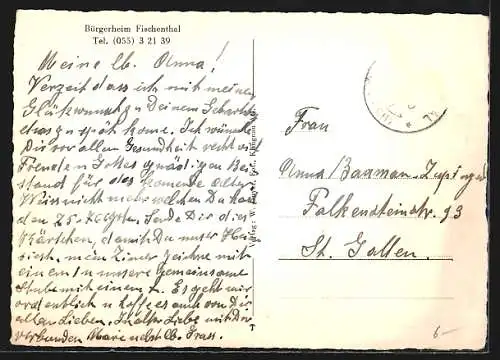 Bürgerheim Fischenthal
Tel. (055) 3 21 39
Meine lb. Anna!
Verzeit dass ich mit meinem
Glükwunsch zu Deinem Geburtst
etwas zu spät kome. Ich wünsche
Dir vor allem Gesundheit recht viel
Freuden Gottes gnädigen Bei
stand für das komende Alter.
Weis nicht mehr welchen Du hast
den 75. Sende Dir dies
Kärtchen, damit Du unser Heim
siehst. mein Zimer zeichne mit
einem 1 u unsere gemeinsame
Stube mit einem +. Es geht mir
ordentlich u hoffe es auch von Dir
allen Lieben. In alter Liebe mit Dir
verbunden Marie nebst lb. Gruss.
Frau
Anna Baumann-
Falkensteinstr. 93
St. Gallen.
6-